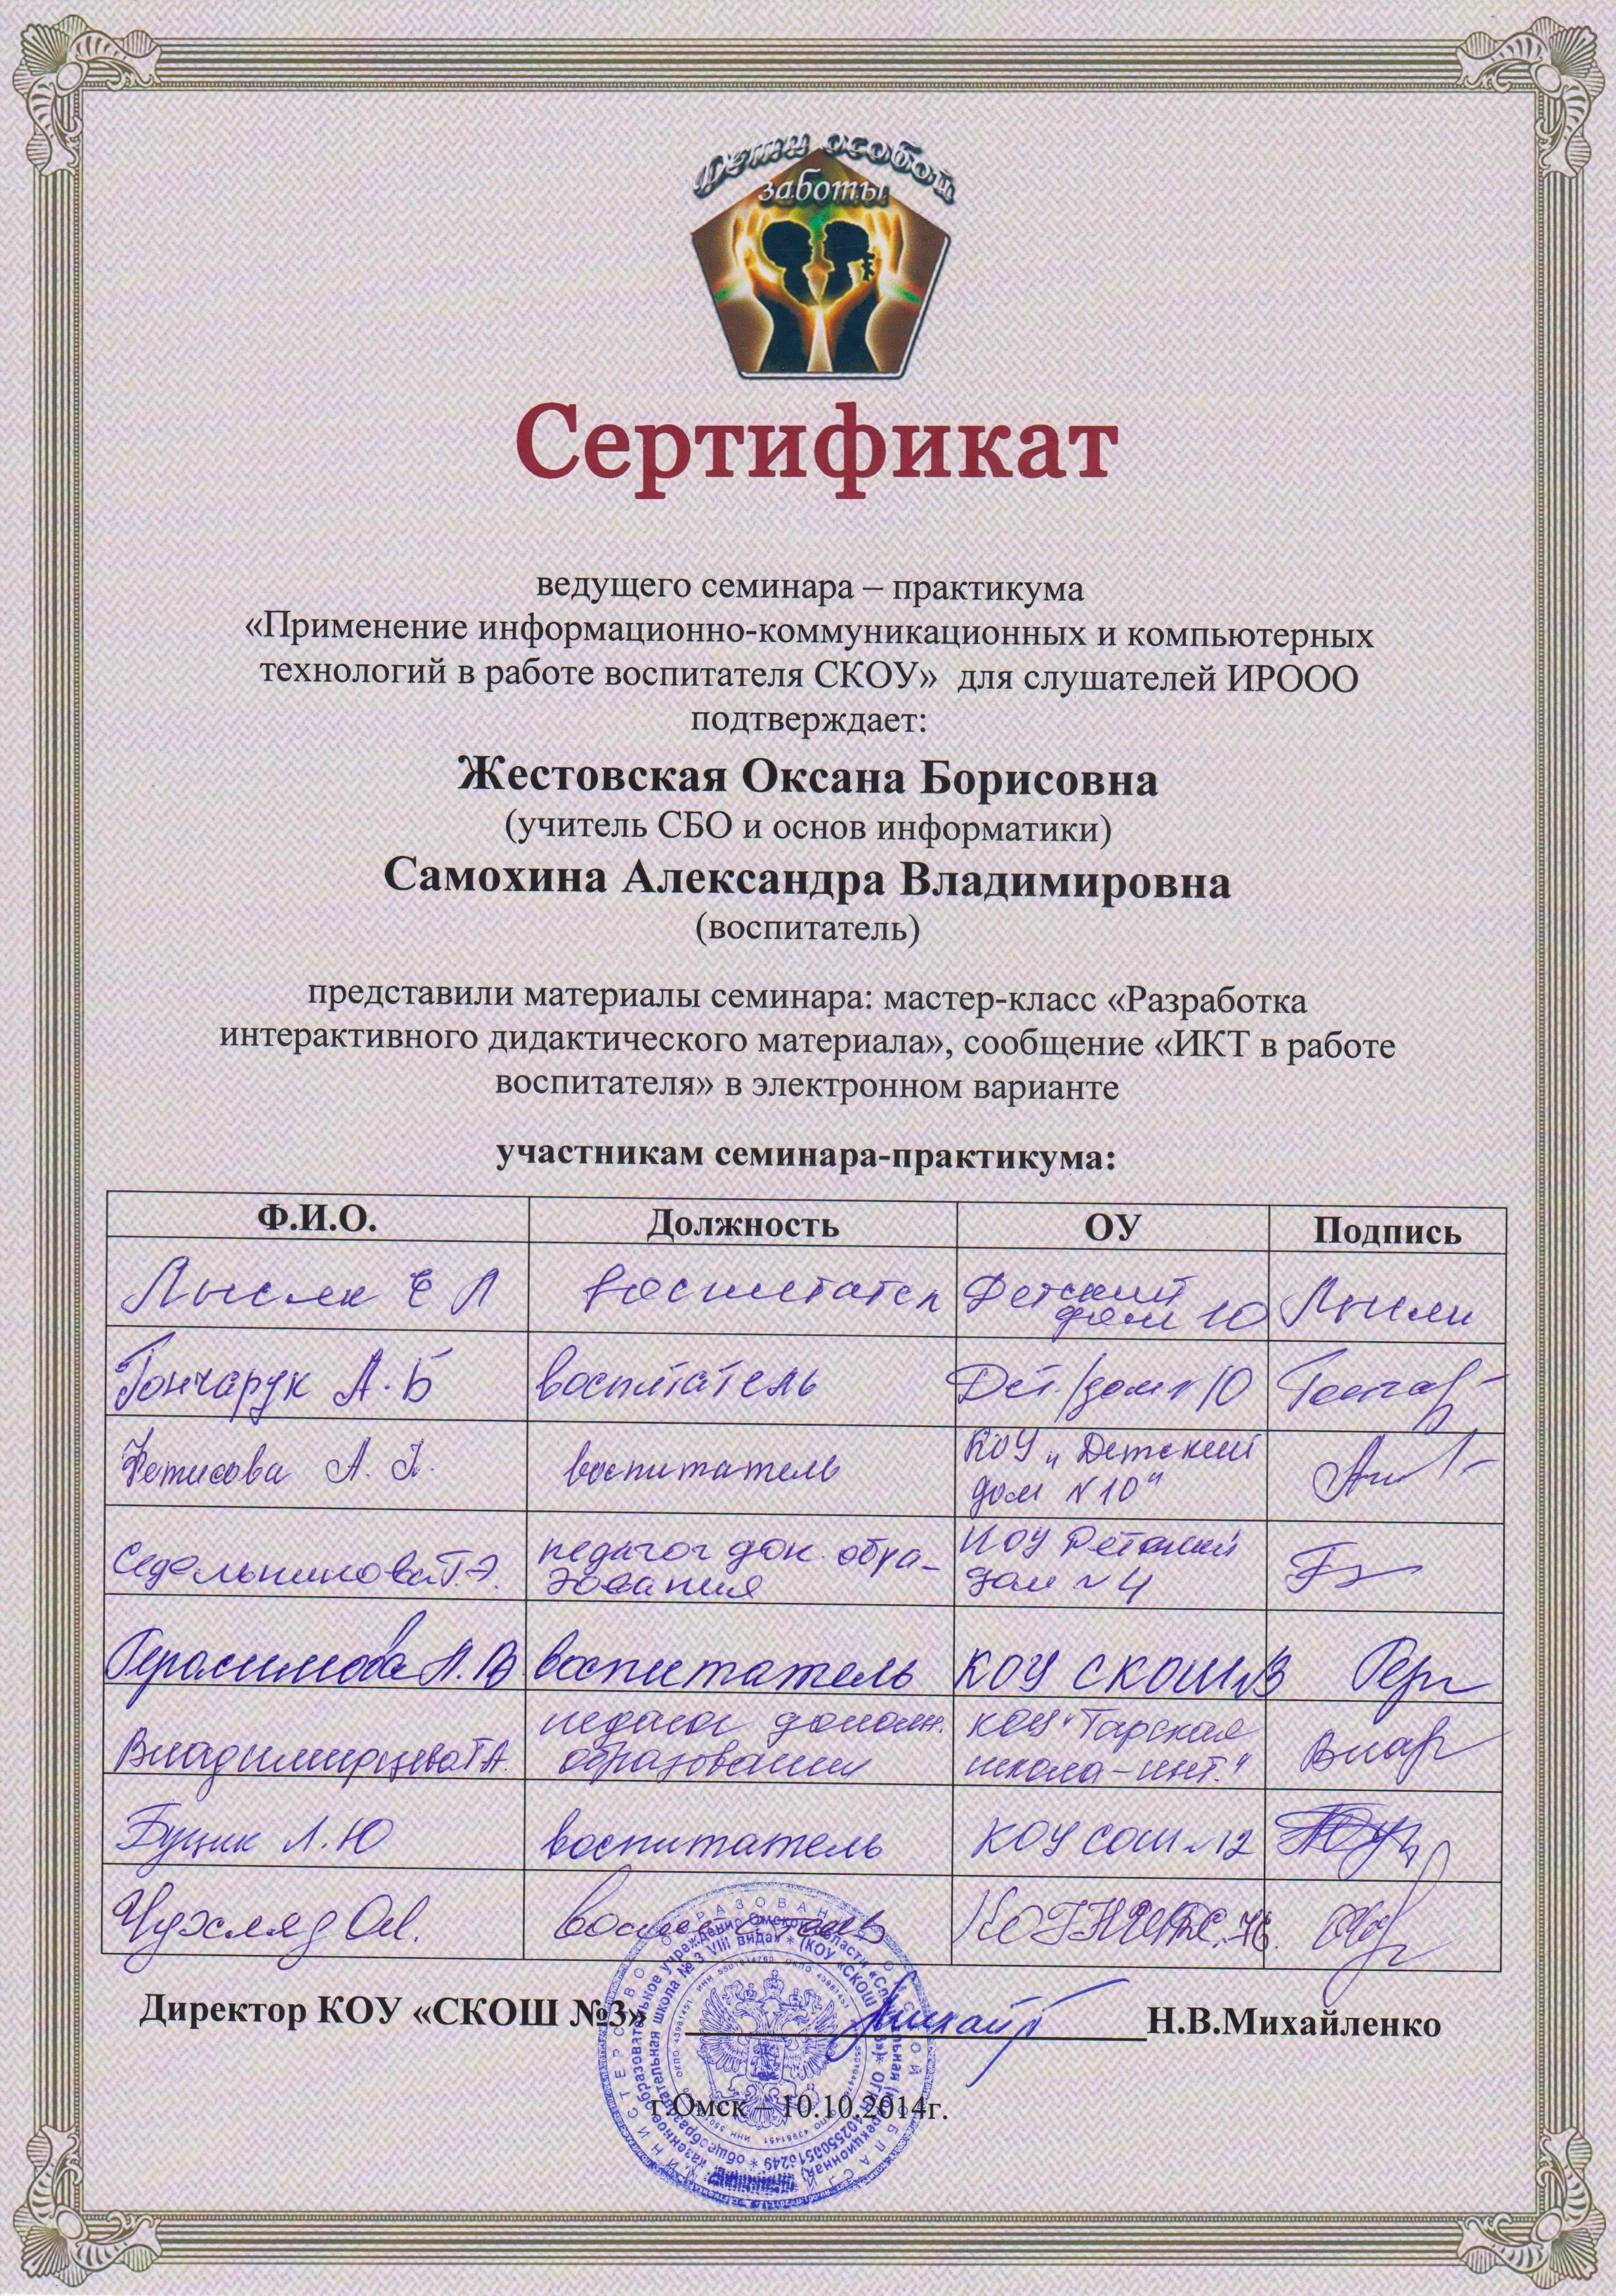 Дети особой
заботы
Сертификат
ведущего семинара – практикума
«Применение информационно-коммуникационных и компьютерных
технологий в работе воспитателя СКОУ» для слушателей ИРООО
подтверждает:
Жестовская Оксана Борисовна
(учитель СБО и основ информатики)
Самохина Александра Владимировна
(воспитатель)
представили материалы семинара: мастер-класс «Разработка
интерактивного дидактического материала», сообщение «ИКТ в работе
воспитателя» в электронном варианте
участникам семинара-практикума:
Ф.И.О. Должность ОУ Подпись
Лысяк Е Л воспитател Детский
дом 10
Гончарук А.Б воспитатель Дет./дом №10
Фетисова А. воспитатель КОУ "Детский
дом №10"
Седельникова Т.Э. педагог доп. обра-
зования КОУ Детский
дом №4
Герасимова Л.В воспитатель КОУ СКОШ №3
Владимирцева Т.А. педагог дополн.
образования КОУ "Тарская
школа-инт."
Буцик Л.Ю воспитатель КОУ СОШ №12
Директор КОУ «СКОШ №3» Н.В.Михайленко
г.Омск – 10.10.2014г.